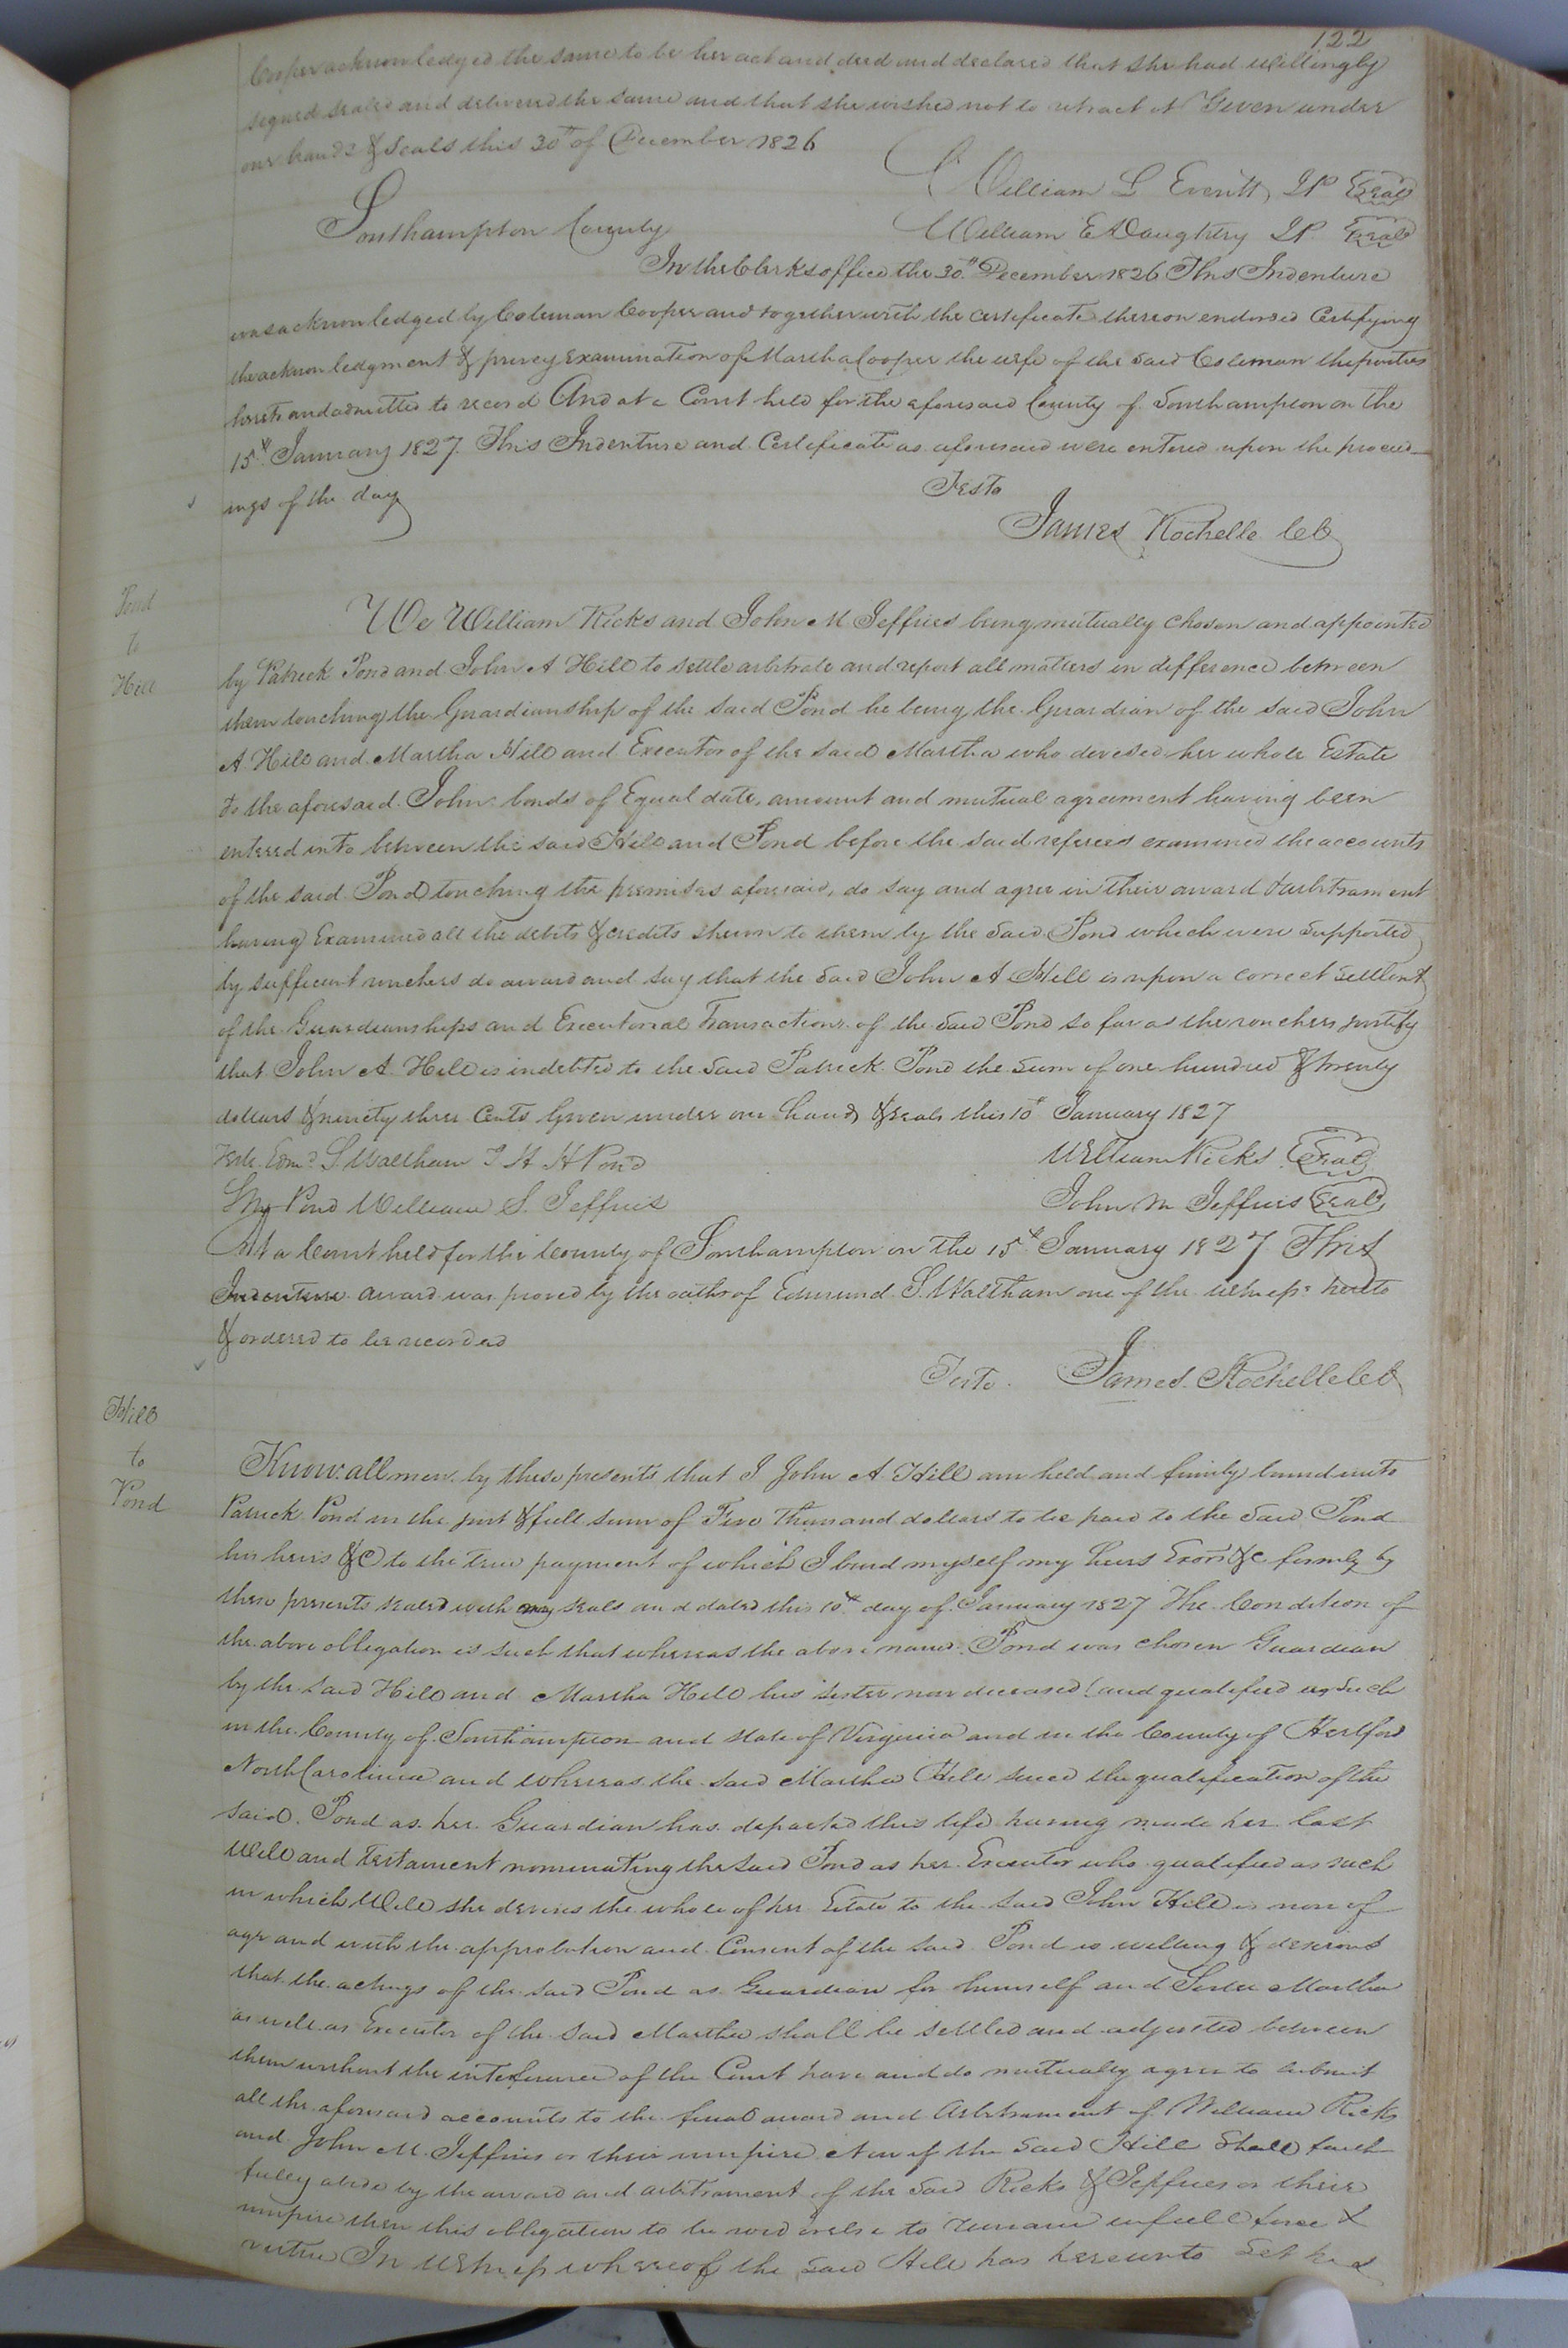 122
Cooper acknowledged the same to be her act and deed and declared that she had willingly
signed sealed and delivered the same and that she wished not to retract it Given under
our hands & Seals this 30th of December 1826
William L Everitt JP Seal
Southampton County
William E Daughtry JP. Seal
In the Clerks office the 30th December 1826 This Indenture
was acknowledged by Coleman Cooper and together with the certificate thereon endorsed Certifying
the acknowledgment & privy Examination of Martha Cooper the wife of the said Coleman the parties
hereto and admitted to record And at a Court held for the aforesaid County of Southampton on the
15th January 1827. This Indenture and Certificate as aforesaid were entered upon the proceed-
ings of the day
Teste
James Rochelle CC
Pond
to
Hill
We William Ricks and John M Jeffries being mutually chosen and appointed
by Patrick Pond and John A Hill to settle arbitrate and report all matters in difference between
them touching the Guardianship of the said Pond he being the Guardian of the said John
A Hill and Martha Hill and Executor of the said Martha who devised her whole Estate
to the aforesaid John bonds of Equal date, amount and mutual agreement having been
entered into between the said Hill and Pond before the said referees examined the accounts
of the said Pond touching the premises aforesaid, do say and agree in their award & arbitrament
having Examined all the debits & credits shewn to them by the said Pond which were supported
by sufficient vouchers do award and say that the said John A Hill is upon a correct settlemt
of the Guardianships and Executorial Transactions of the said Pond so far as the vouchers justify
that John A. Hill is indebted to the said Patrick Pond the sum of one hundred & twenty
dollars & ninety three Cents Given under our hands & seals this 10th January 1827
Teste Edmd S. Waltham J H H Pond
Pond William S. Jeffries
William Ricks Seal
John M Jeffries Seal
At a Court held for the County of Southampton on the 15th January 1827 This
Indenture award was proved by the oath of Edmund S. Waltham one of the witness hereto
& ordered to be recorded
Teste. James Rochelle CC
Hill
to
Pond
Know all men by these presents that I John A. Hill am held and firmly bound unto
Patrick Pond in the just & full sum of Five Thousand dollars to be paid to the said Pond
his heirs &C to the true payment of which I bind myself my heirs Exors &c firmly by
these presents sealed with my seals and dated this 10th day of January 1827 The Condition of
the above obligation is such that whereas the above named Pond was chosen Guardian
by the said Hill and Martha Hill his sister now deceased and qualified as such
in the County of Southampton and state of Virginia and in the County of Hertford
North Carolina and whereas the said Martha Hill since the qualification of the
said Pond as her Guardian has departed this life having made her last
Will and Testament nominating the said Pond as her Executor who qualified as such
in which Will she devises the whole of her Estate to the said John Hill is now of
age and with the approbation and Consent of the said Pond is willing & desirous
that the actings of the said Pond as Guardian for himself and Sister Martha
as well as Executor of the said Martha shall be settled and adjusted between
them without the interference of the Court have and do mutually agree to submit
all the aforesaid accounts to the final award and Arbitrament of William Ricks
and John M. Jeffries or their umpire Now if the said Hill Shall faith
fully abide by the award and arbitrament of the said Ricks & Jeffries or their
umpire then this obligation to be void or else to remain in full force &
virtue In Witness whereof the said Hill has hereunto set